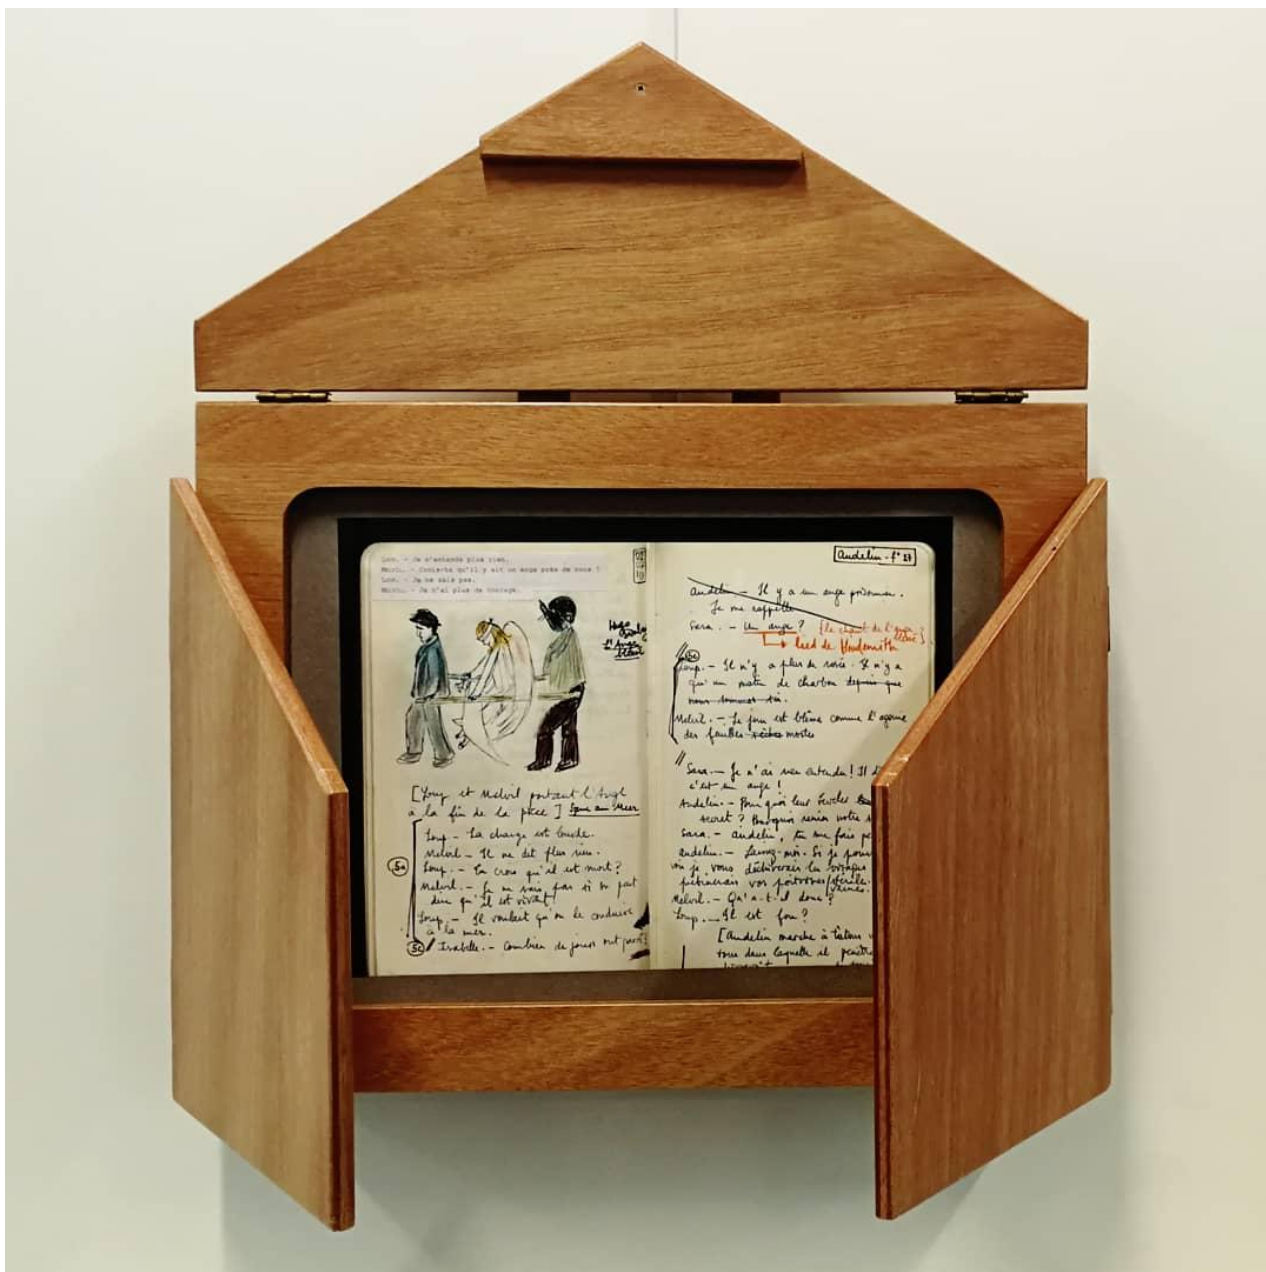 Lou. - Je n'entends plus rien.
March. - Crois-tu qu'il y ait un ange près de nous ?
Lou. - Je ne sais pas.
March. - Je n'ai plus de courage.
Hugo
l'Ange
[Loup et Melvil portant l'Ange
à la fin de la pièce]
5a
Loup - La charge est lourde.
Melvil - Il ne dit plus rien.
Loup. - Tu crois qu'il est mort?
Melvil. - Je ne sais pas si on peut
dire qu'il est vivant!
Loup. - Il voulait qu'on le conduise
à la mer.
5c
Isabelle. - Combien de jours ont
Audelin - f° 27
Audelin - Il y a un ange prisonnier.
Je me rappelle
Sara. - Un ange? [le chant de l'ange
lied de Hindemith
Loup. - Il n'y a plus de rosée. Il n'y a
qu'un matin de charbon depuis que
nous sommes
Melvil. - Le jour est blême comme l'agonie
des feuilles sèches mortes
Sara. - Je n'ai rien entendu! Il
c'est un ange!
Audelin. - Pourquoi leur révéler
secret? Pourquoi votre
Sara. - Audelin, tu me fais
Audelin. - Laissez-moi. Si je
je vous vos visages
vos poitrines stériles.
Melvil. - Qu'a-t-il donc?
Loup. - Il est fou?
[Audelin marche à tâtons
dans laquelle il